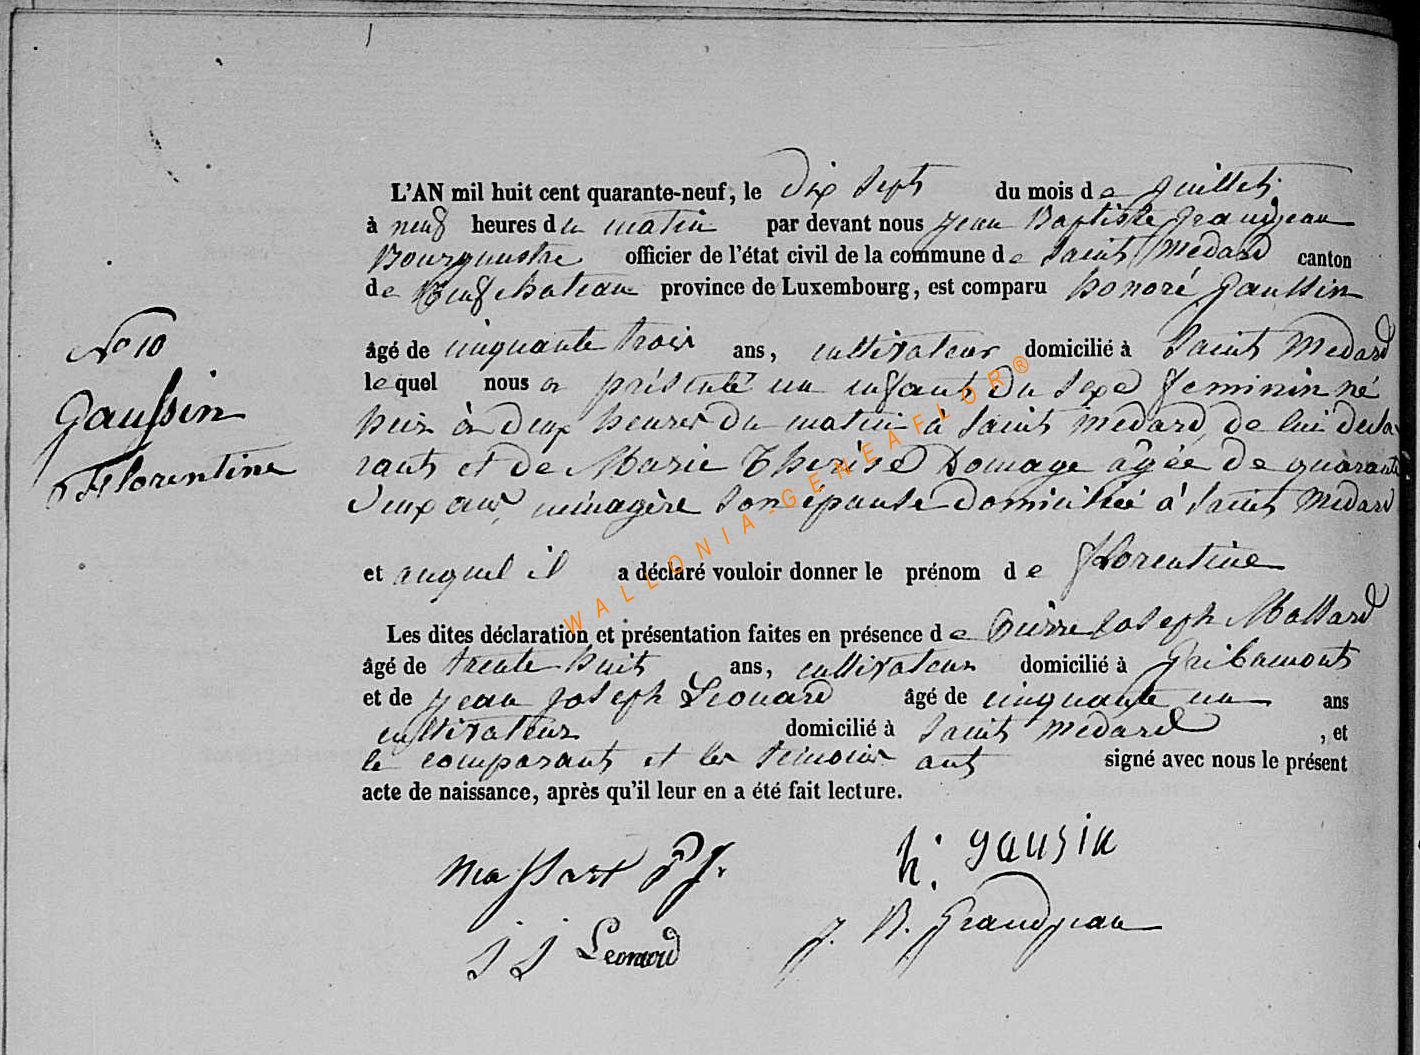 L'AN mil huit cent quarante-neuf, le dix sept du mois de juillet
à neuf heures du matin par devant nous Jean Baptiste Grandjean
Bourgmestre officier de l'état civil de la commune de Saint Médard canton
de Neufchateau province de Luxembourg, est comparu honoré Gaussin
N° 10
Gaussin
Florentine
âgé de cinquante trois ans, cultivateur domicilié à Saint Medard
lequel nous a présenté un enfant du sexe feminin né
hier à deux heures du matin à Saint medard, de lui décla
rant et de Marie Thérèse Domage âgée de quarante
deux ans, ménagère son épouse domiciliée à Saint Medard
et auquel il a déclaré vouloir donner le prénom de florentine
Les dites déclaration et présentation faites en présence de Pierre Joseph Massard
âgé de trente huit ans, cultivateur domicilié à Gribomont
et de Jean Joseph Léonard âgé de cinquante un ans
cultivateur domicilié à Saint Medard, et
le comparant et les témoins ont signé avec nous le présent
acte de naissance, après qu'il leur en a été fait lecture.
Massart P J.
h. gausin
J J Leonard
J. B. Grandjean
WALLONIA-GENEAFLOR®